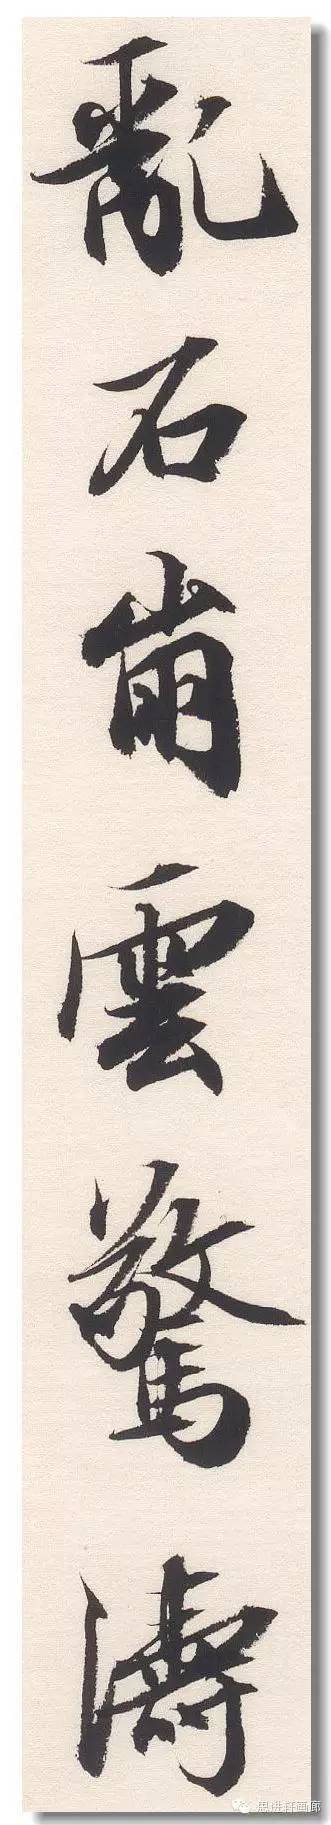 亂石崩雲驚濤
思进轩画廊